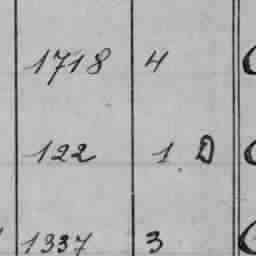 1718 4
122 1 D
1337 3